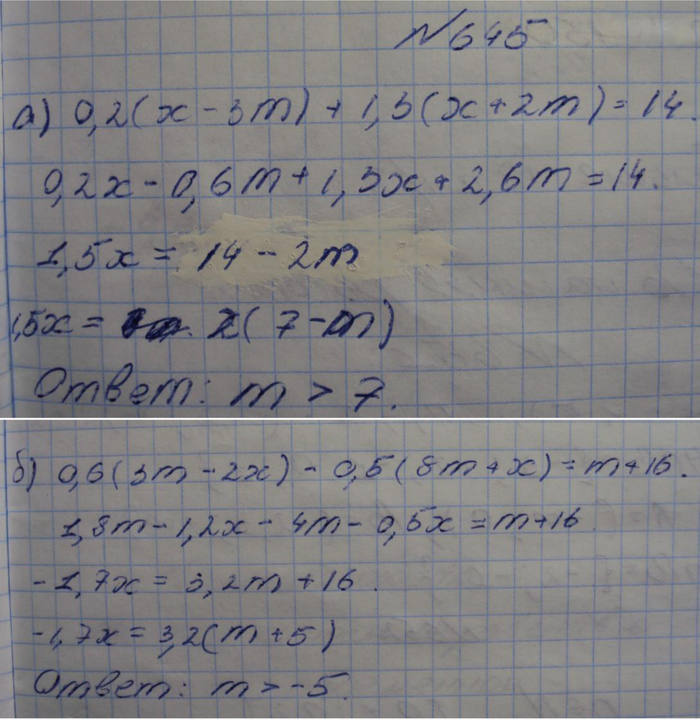 №645
а) 0,2(x - 3m) + 1,3(x + 2m) = 14.
0,2x - 0,6m + 1,3x + 2,6m = 14.
1,5x = 14 - 2m
1,5x = 2(7 - m)
Ответ: m > 7.
б) 0,6(3m - 2x) - 0,5(8m + x) = m + 16.
1,8m - 1,2x - 4m - 0,5x = m + 16
-1,7x = 3,2m + 16.
-1,7x = 3,2(m + 5)
Ответ: m > -5.